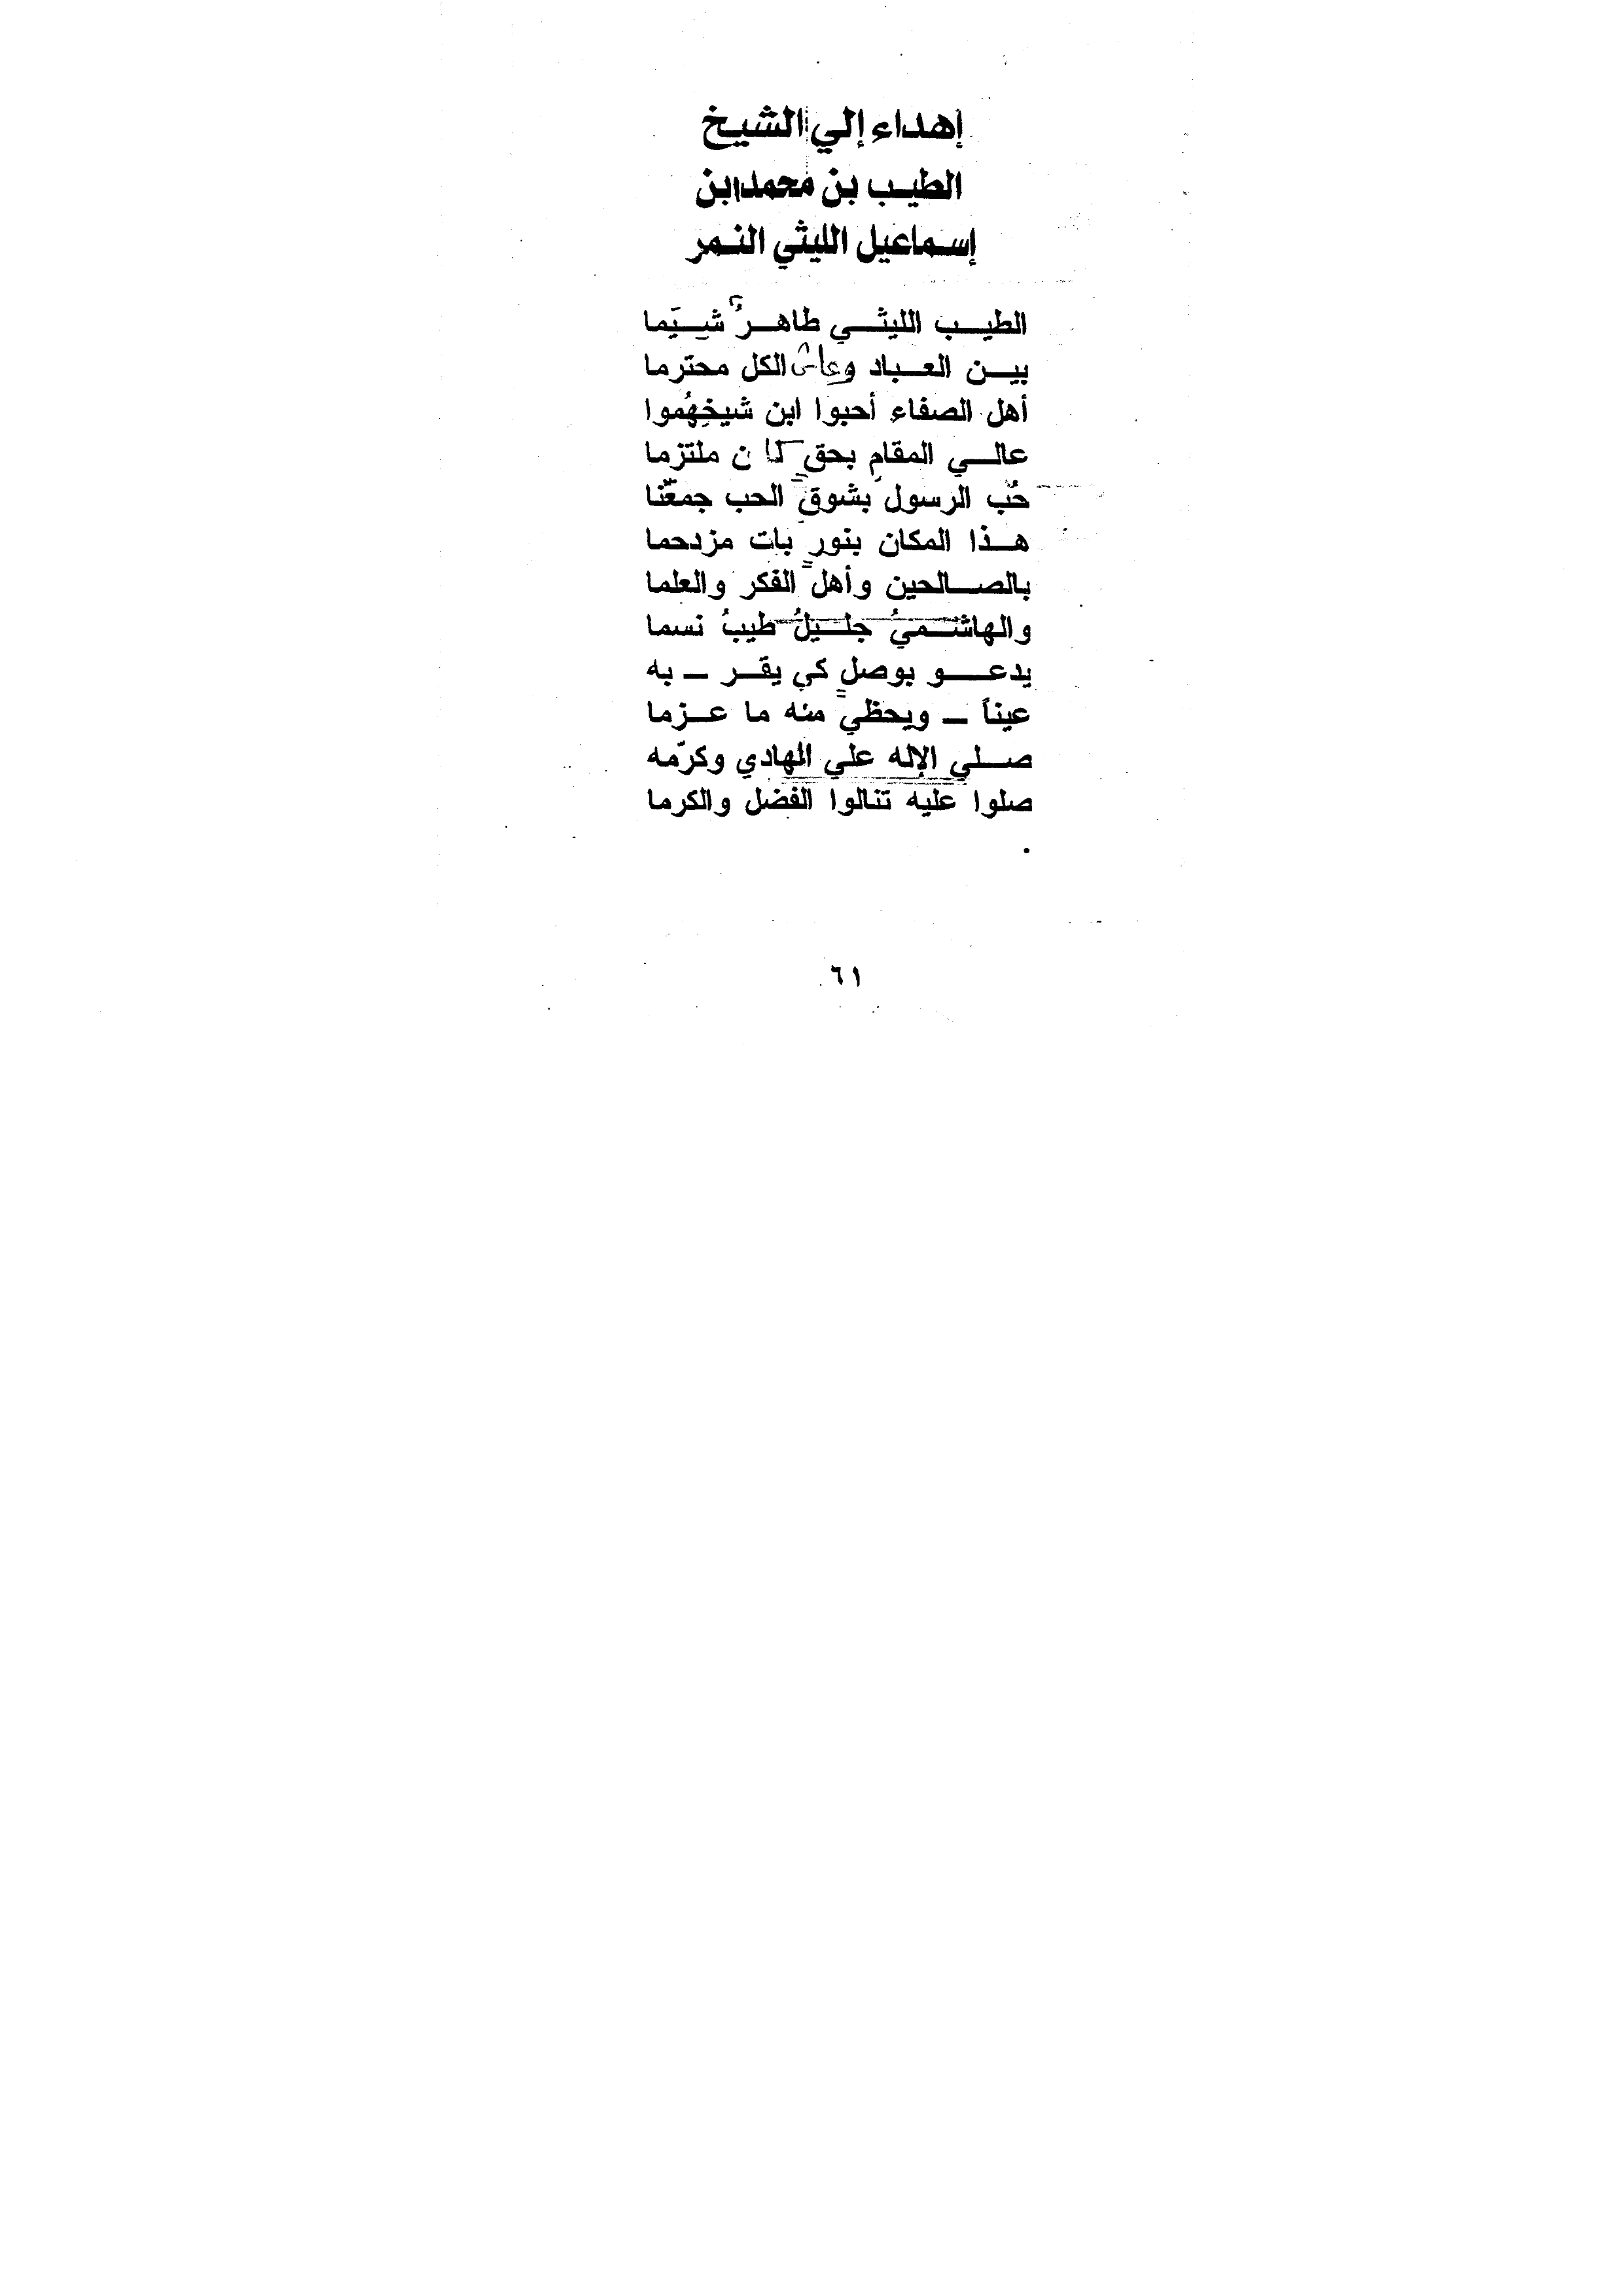 إهداء إلي الشيخ
الطيب بن محمد ابن
إسماعيل الليثي النمر
الطيب الليثي طاهرٌ شيَما
بين العباد وعاش الكل محترما
أهل الصفاء أحبوا ابن شيخِهُموا
عالي المقامِ بحقٍ كان ملتزما
حُب الرسول بشوقِ الحب جمعّنا
هذا المكان بنورٍ بات مزدحما
بالصالحين وأهل الفكر والعلما
والهاشميُ جليلُ طيبُ نسما
يدعو بوصلٍ كي يقر – به
عيناً – ويحظي منه ما عزما
صلي الإله علي الهادي وكرّمه
صلوا عليه تنالوا الفضل والكرما
.
٦١